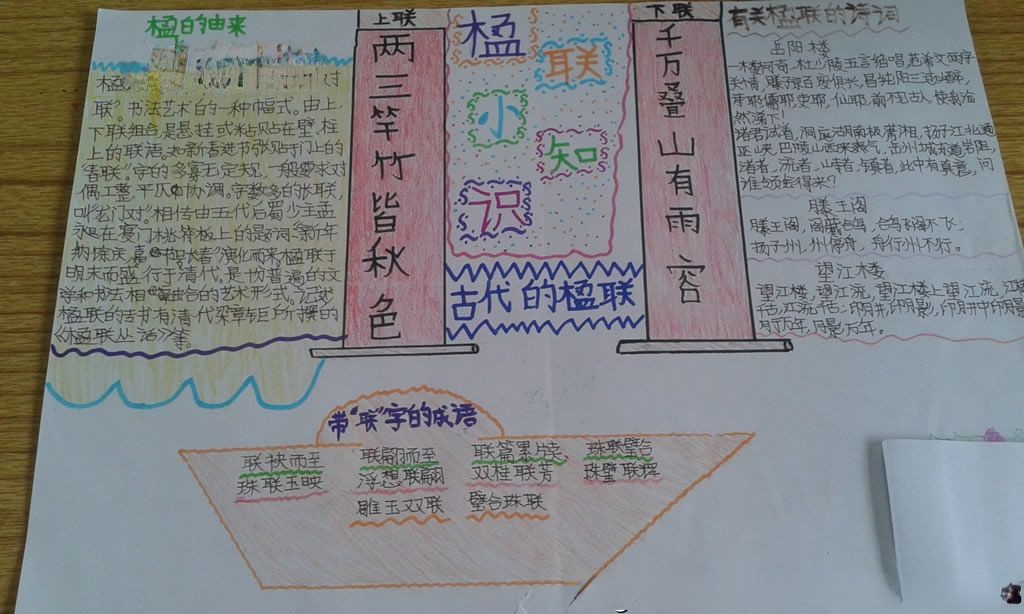 楹的由来
楹 对
联。书法艺术的一种幅式。由上、
下联组合,是悬挂或粘贴在壁、柱
上的联语。如新春进节张贴于门上的
春联。字的多寡无定规,一般要求对
偶工整,平仄协调,字数多的长联,
相传由五代后蜀少主孟
昶在寝门桃符板上的题词“新年
纳馀庆,嘉节号长春”演化而来,楹联于
明末而盛行于清代,是一切普遍的文
学和书法相融合的艺术形式。记妙
楹联的古书有清代梁章钜所撰的
《楹联丛话》等。
上联
两三竿竹皆秋色
楹联小知识
古代的楹联
下联
千万叠山有雨容
有关楹联的诗词
岳阳楼
一楼何奇,杜少陵五言绝唱,范希文两字
关情,滕子京百废俱兴,吕纯阳三过必醉,
诗耶儒耶,吏耶,仙耶,前不见古人,使我沧
然涕下!
诸君试看,洞庭湖南极潇湘,扬子江北通
巫峡,巴陵山西来爽气,岳州城东道岩疆,
潴者,流者,峙者,镇者,此中有真意,问
谁领会得来?
滕王阁
滕王阁,阁藏鸽,鸽飞阁不飞;
扬子州,州停舟,舟行州不行。
望江楼
望江楼,望江流,望江楼上望江流,江楼
千古,江流千古;印月井,印月影,印月井中印月影,
月井万年,月影万年。
带“联”字的成语
联袂而至 联翩而至 联篇累牍 珠联璧合
珠联玉映 浮想联翩 双桂联芳 珠璧联辉
雕玉双联 璧合珠联